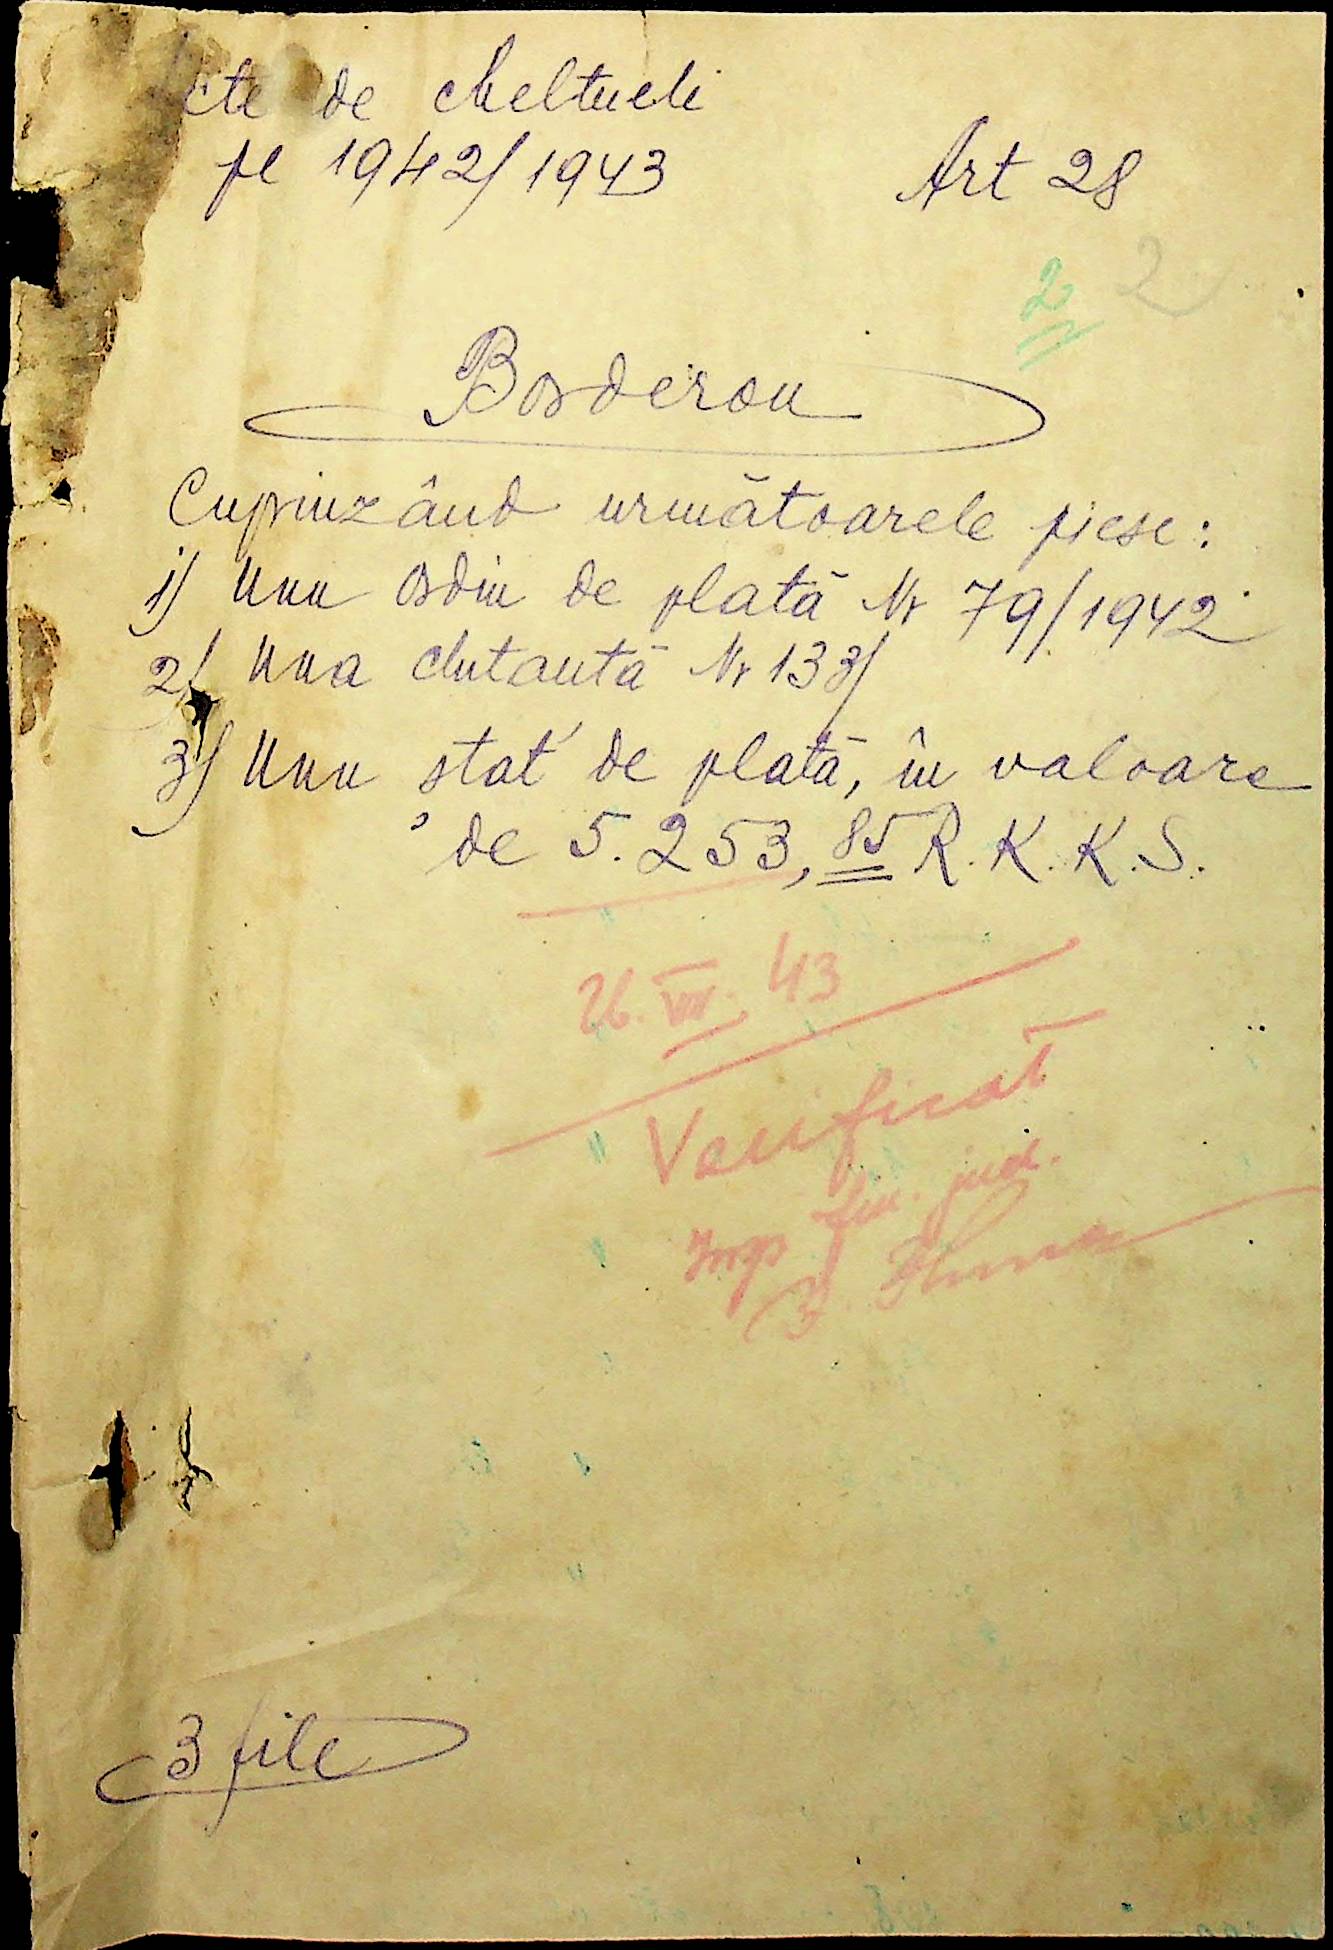 cte de cheltueli
pe 1942/1943 Art 28
2 2
Borderou
Cuprinzând următoarele piese:
1) Unu ordin de plată Nr 79/1942
2) Una chitanță Nr 133/
3) Unu stat de plată, în valoare
de 5.253,85 R.K.K.S.
26.VII.43
Verificat
Insp fin. jud.
3 file